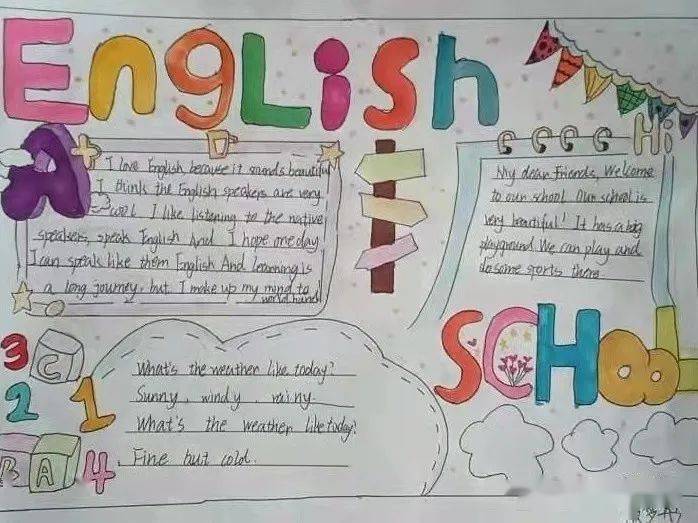 English
A+
Hi
I love English because it sounds beautiful
I think the English speakers are very
cool I like listening to the native
speakers, speak English And I hope one day
I can speak like them English And learning is
a long journey, but I make up my mind to
work hard
My dear friends, Welcome
to our school Our school is
very beautiful! It has a big
playground We can play and
do some sports there.
SCHOOL
3
C
2
1
B A
4
What's the weather like today?
Sunny, windy, rainy
What's the weather like today?
Fine but cold.